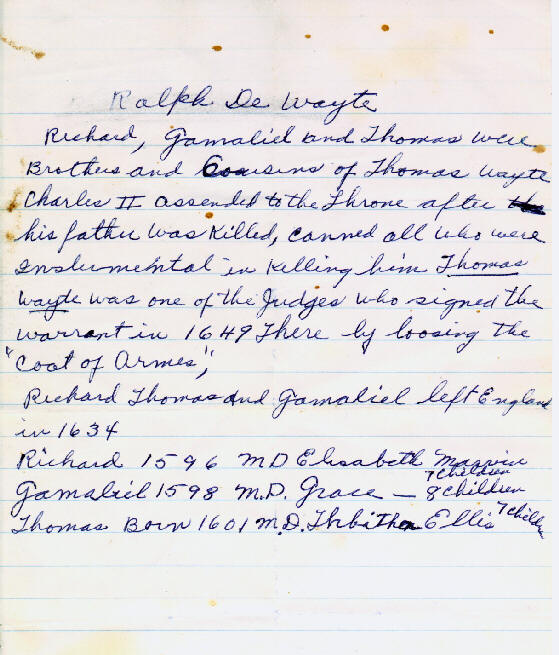 Ralph De Wayte
Richard, Gamaliel and Thomas were
Brothers and Cousins of Thomas Wayte
Charles II assended to the Throne after
his father was Killed, canned all who were
instrumental in killing him Thomas
Wayte was one of the Judges who signed the
warrant in 1649 There by loosing the
"Coat of Armes",
Richard Thomas and Gamaliel left England
in 1634
Richard 1596 MD Elisabeth
7 children
Gamaliel 1598 M.D. Grace — 8 children
Thomas Born 1601 M.D. Ellis 7 children